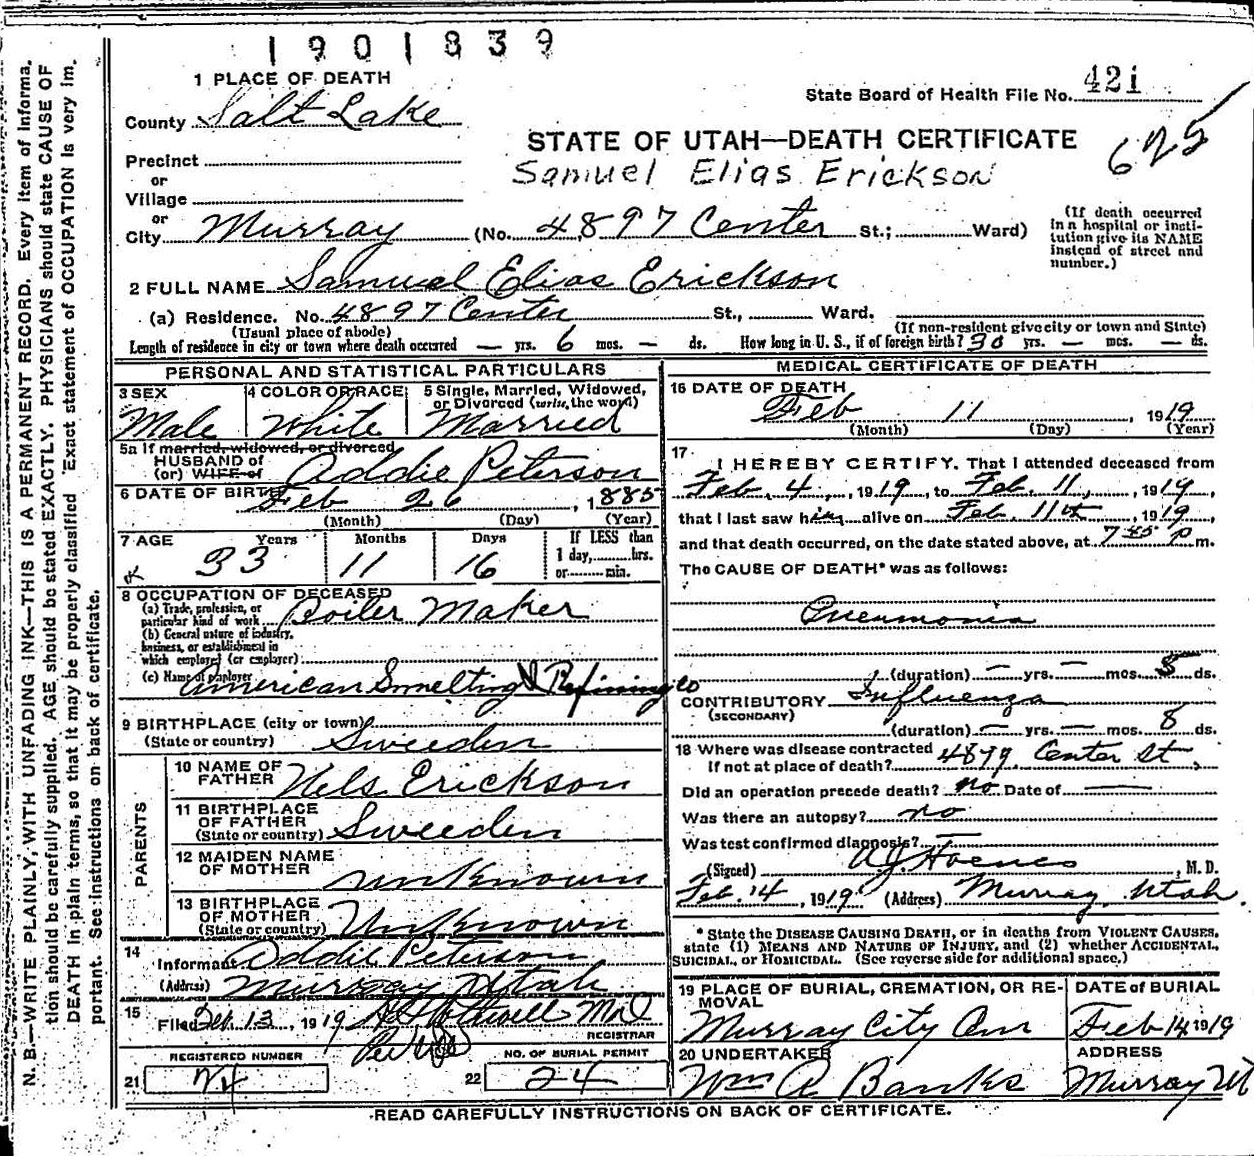 1901839
1 PLACE OF DEATH
State Board of Health File No. 421
County Salt Lake
STATE OF UTAH—DEATH CERTIFICATE
625
Precinct
Samuel Elias Erickson
or
Village
or
City Murray (No. 4897 Center St.; Ward)
(If death occurred in a hospital or institution give its NAME instead of street and number.)
2 FULL NAME Samuel Elias Erickson
(a) Residence. No. 4897 Center St., Ward.
(Usual place of abode) (If non-resident give city or town and State)
Length of residence in city or town where death occurred — yrs. 6 mos. — ds. How long in U. S., if of foreign birth? 30 yrs. — mos. — ds.
PERSONAL AND STATISTICAL PARTICULARS
3 SEX 4 COLOR OR RACE 5 Single, Married, Widowed, or Divorced (write the word)
Male White Married
5a If married, widowed, or divorced
HUSBAND of
(or) WIFE of Addie Peterson
6 DATE OF BIRTH Feb 26, 1885
(Month) (Day) (Year)
7 AGE Years Months Days If LESS than
33 11 16 1 day, hrs.
or min.
8 OCCUPATION OF DECEASED
(a) Trade, profession, or
particular kind of work Boiler Maker
(b) General nature of industry,
business, or establishment in
which employed (or employer)
(c) Name of employer
American Smelting & Refining Co
9 BIRTHPLACE (city or town)
(State or country) Sweeden
PARENTS
10 NAME OF
FATHER Nels Erickson
11 BIRTHPLACE
OF FATHER
(State or country) Sweeden
12 MAIDEN NAME
OF MOTHER unknown
13 BIRTHPLACE
OF MOTHER
(State or country) Unknown
14
Informant Addie Peterson
(Address) Murray Utah
15
Filed 13, 1919
REGISTRAR
REGISTERED NUMBER NO. OF BURIAL PERMIT
21 24 22 24
MEDICAL CERTIFICATE OF DEATH
16 DATE OF DEATH
Feb 11, 1919
(Month) (Day) (Year)
17
I HEREBY CERTIFY, That I attended deceased from
Feb. 4, 1919, to Feb. 11, 1919,
that I last saw him alive on Feb. 11th, 1919,
and that death occurred, on the date stated above, at 7 45 p m.
The CAUSE OF DEATH* was as follows:
Pneumonia
(duration) — yrs. — mos. 5 ds.
CONTRIBUTORY Influenza
(SECONDARY)
(duration) — yrs. — mos. 8 ds.
18 Where was disease contracted 4879 Center St,
If not at place of death?
Did an operation precede death? no Date of —
Was there an autopsy? no
Was test confirmed diagnosis? —
(Signed) , M. D.
Feb. 14, 1919 (Address) Murray, Utah.
* State the DISEASE CAUSING DEATH, or in deaths from VIOLENT CAUSES,
state (1) MEANS AND NATURE OF INJURY, and (2) whether ACCIDENTAL,
SUICIDAL, or HOMICIDAL. (See reverse side for additional space.)
19 PLACE OF BURIAL, CREMATION, OR RE-
MOVAL DATE of BURIAL
Murray City Feb 14 1919
20 UNDERTAKER ADDRESS
Wm A Banks Murray Ut
READ CAREFULLY INSTRUCTIONS ON BACK OF CERTIFICATE.
N. B.—WRITE PLAINLY, WITH UNFADING INK—THIS IS A PERMANENT RECORD. Every item of informa-
tion should be carefully supplied. AGE should be stated EXACTLY. PHYSICIANS should state CAUSE OF
DEATH in plain terms, so that it may be properly classified. Exact statement of OCCUPATION is very im-
portant. See instructions on back of certificate.